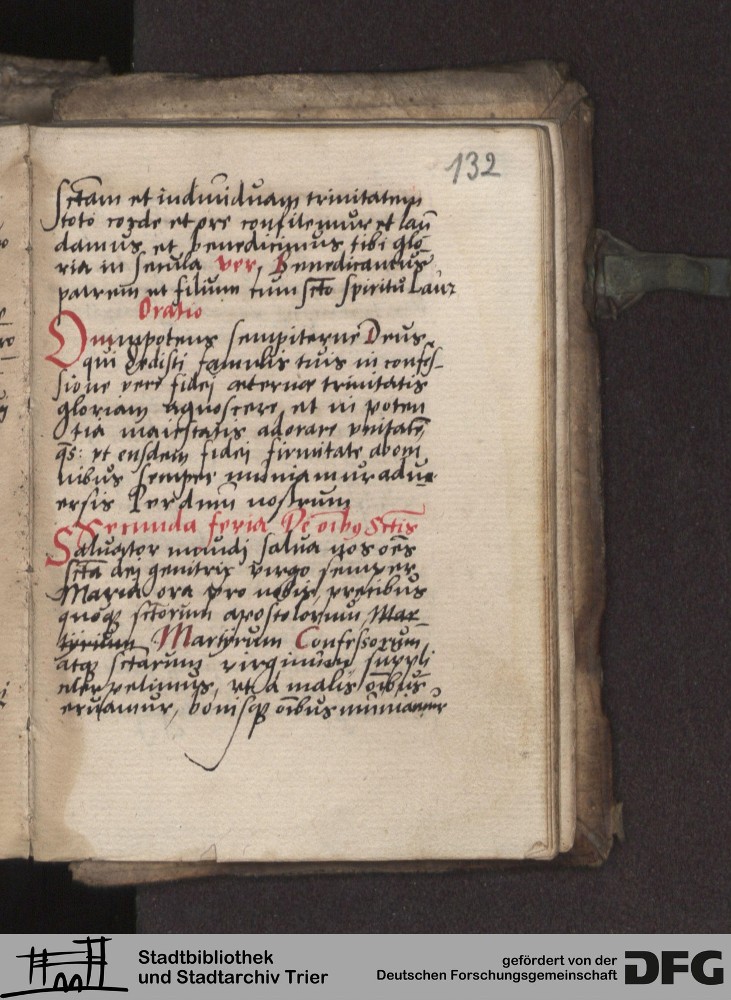 132
sctam et indiuiduam trinitatem
toto corde et ore confitemur et lau
damus et benedicimus tibi glo
ria in secula ver, Benedicamus
patrem et filium cum scto spiritu Laur
Oratio
Omnipotens sempiterne Deus,
qui dedisti famulis tuis in confes-
sione vere fidej æternæ trinitatis
gloriam agnoscere, et in poten
tia maiestatis adorare vnitatē
qs: vt eiusdem fidei firmitate ab om
nibus semper muniamur adu-
ersis Per dnm nostrum
Secunda feria De oibus Sctis
Saluator mundj salua nos oēs
scta dej genitrix virgo semper
Maria ora pro nobis, precibus
quoq sctorum apostolorum Mar-
tyrium Martyrum Confessorum,
atq sctarum virginum suppli
citer petimus, vt a malis oībus
eruamur, bonisq oībus
Stadtbibliothek
und Stadtarchiv Trier
gefördert von der
Deutschen Forschungsgemeinschaft
DFG